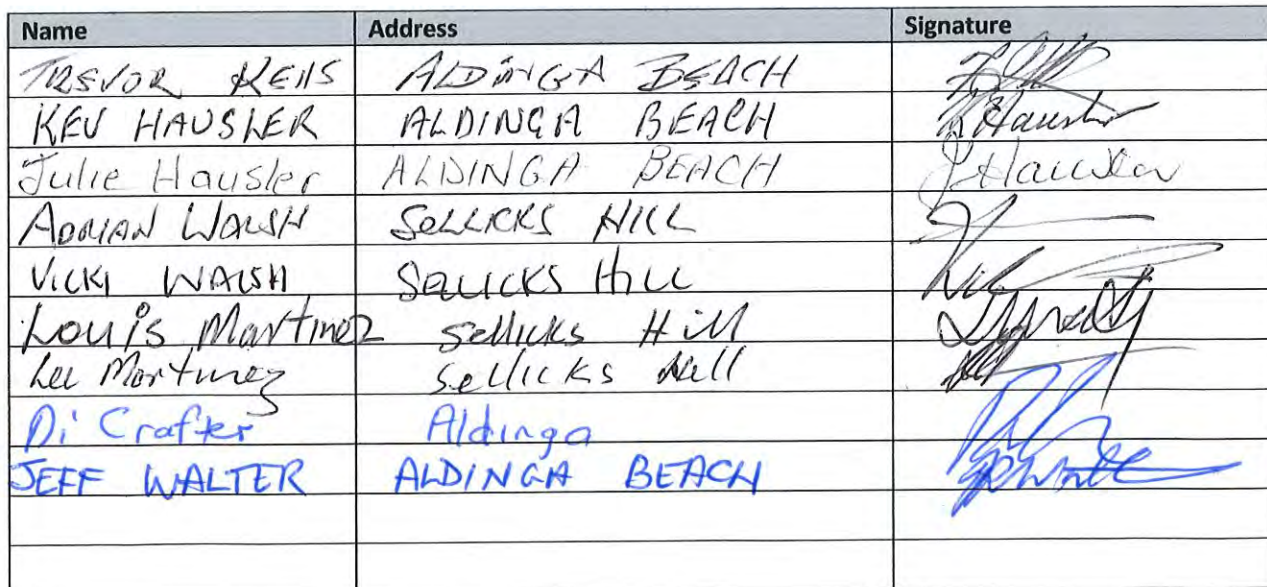 Name Address Signature
TREVOR ALDINGA BEACH
KEV HAUSLER ALDINGA BEACH K Hausler
Julie Hausler ALDINGA BEACH J Hausler
ADRIAN WALSH SELLICKS HILL
VICKI WALSH SELLICKS HILL
Louis Martinez Sellicks Hill
Lee Martinez Sellicks Hill
Di Crafter Aldinga
JEFF WALTER ALDINGA BEACH